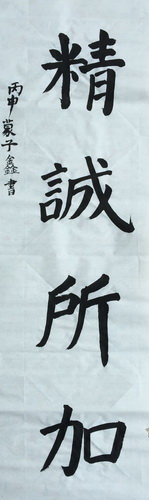 精誠所加
丙申蒙子鑫書